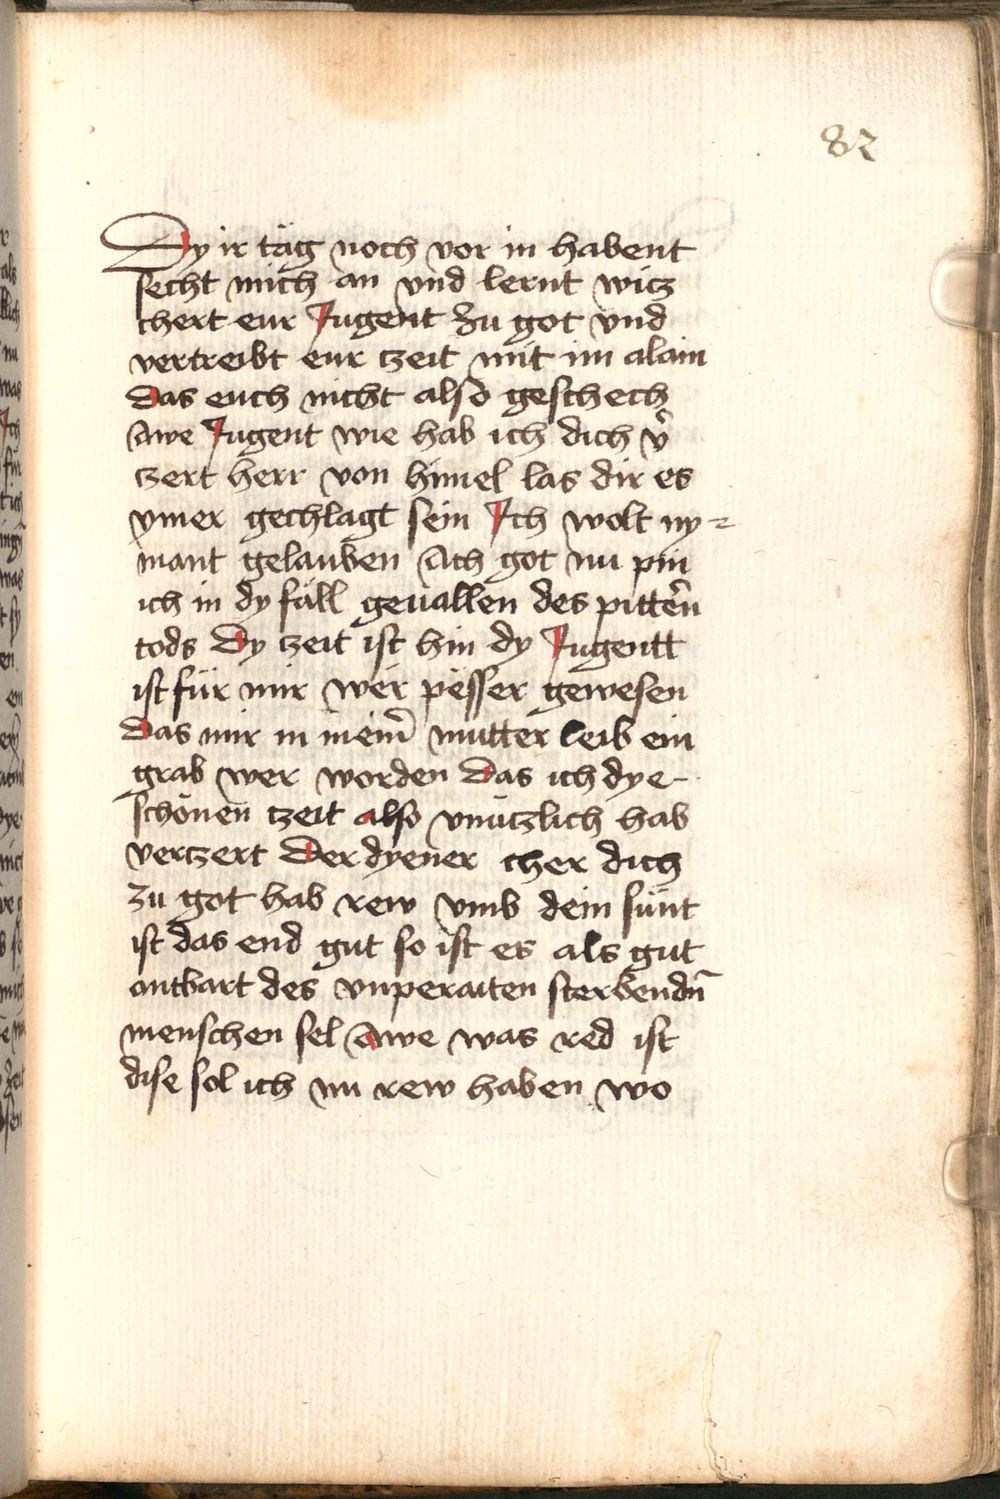 82
Dy ir täg noch vor in habent
secht mich an vnd lernt wicz
chert eur Jugent zu got vnd
vertreibt eur czeit mit im alain
das euch nicht also geschech
Awe Jugent wie hab ich dich v̉
czert herr von himel las dir es
ymer gechlagt sein Jch wolt ny=
mant gelauben Ach got nu pin
ich in dy fäll geuallen des pittern̉
tods Dy czeit ist hin dy Jugentt
ist für mir wer pesser gewesen
Das mir in meim̉ mutter leib ein
grab wer worden Das ich dye
schönen czeit also vnüczlich hab
verczert Der dyener cher dich
zu got hab rew vmb dein sünt
ist das end gut so ist es als gut
antbart des vnperaiten sterbendn̄
menschen sel Awe was red ist
dise sol ich nu rew haben wo